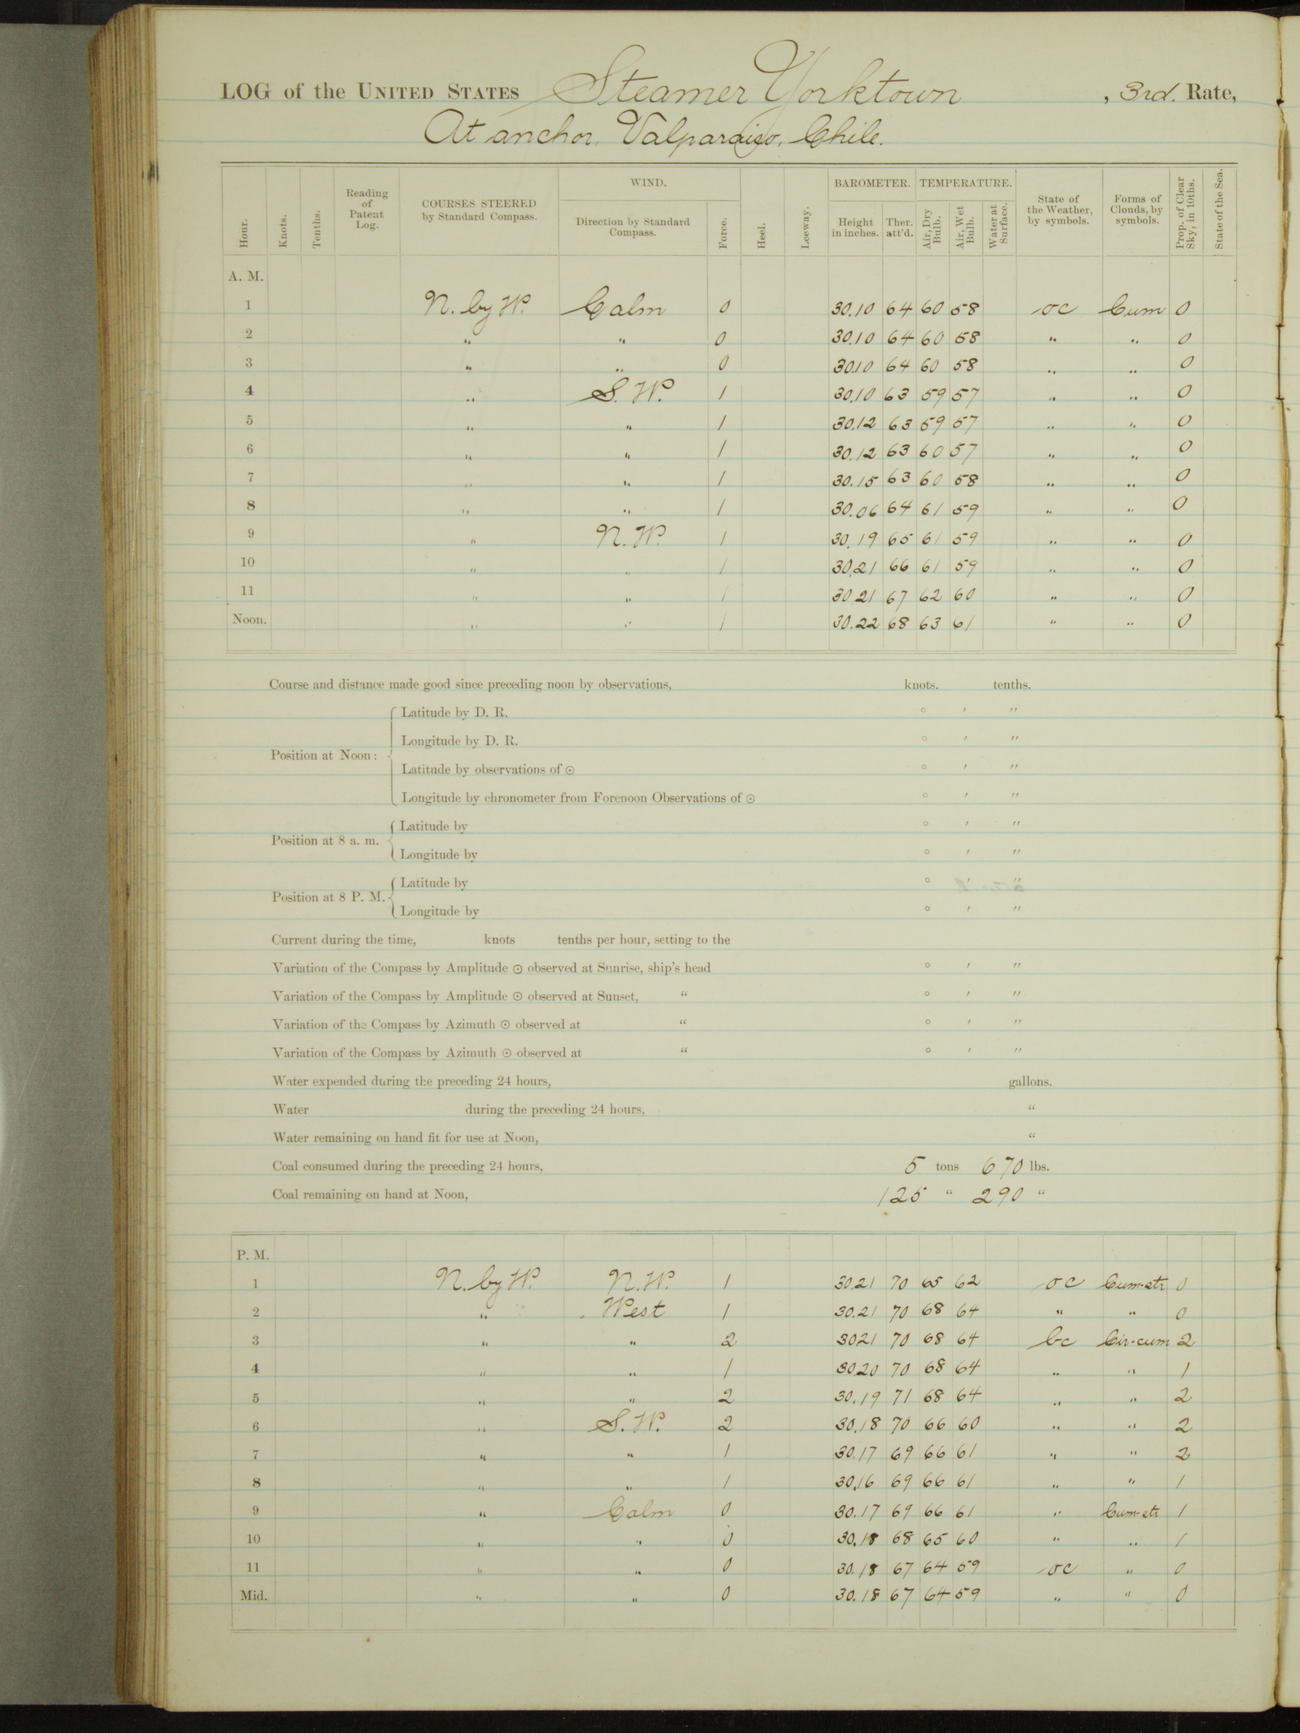 LOG of the UNITED STATES Steamer Yorktown, 3rd. Rate,
At anchor, Valparaiso, Chile.
Hour. Knots. Tenths. Reading of Patent Log. COURSES STEERED by Standard Compass. WIND. Direction by Standard Compass. Force. Heel. Leeway. BAROMETER. Height in inches. Ther. att'd. TEMPERATURE. Air, Dry Bulb. Air, Wet Bulb. Water at Surface. State of the Weather, by symbols. Forms of Clouds, by symbols. Prop. of Clear Sky, in 10ths. State of the Sea.
A. M.
1 N. by W. Calm 0 30.10 64 60 58 oc Cum 0
2 " " 0 30.10 64 60 58 " " 0
3 " " 0 30.10 64 60 58 " " 0
4 " S. W. 1 30.10 63 59 57 " " 0
5 " " 1 30.12 63 59 57 " " 0
6 " " 1 30.12 63 60 57 " " 0
7 " " 1 30.15 63 60 58 " " 0
8 " " 1 30.06 64 61 59 " " 0
9 " N. W. 1 30.19 65 61 59 " " 0
10 " " 1 30.21 66 61 59 " " 0
11 " " 1 30.21 67 62 60 " " 0
Noon. " " 1 30.22 68 63 61 " " 0
Course and distance made good since preceding noon by observations, knots. tenths.
Latitude by D. R. ° ' "
Longitude by D. R. ° ' "
Position at Noon:
Latitude by observations of ☉ ° ' "
Longitude by chronometer from Forenoon Observations of ☉ ° ' "
Latitude by ° ' "
Position at 8 a. m.
Longitude by ° ' "
Latitude by ° ' "
Position at 8 P. M.
Longitude by ° ' "
Current during the time, knots tenths per hour, setting to the
Variation of the Compass by Amplitude ☉ observed at Sunrise, ship's head ° ' "
Variation of the Compass by Amplitude ☉ observed at Sunset, " ° ' "
Variation of the Compass by Azimuth ☉ observed at " ° ' "
Variation of the Compass by Azimuth ☉ observed at " ° ' "
Water expended during the preceding 24 hours, gallons.
Water during the preceding 24 hours, "
Water remaining on hand fit for use at Noon, "
Coal consumed during the preceding 24 hours, 5 tons 670 lbs.
Coal remaining on hand at Noon, 125 " 290 "
P. M.
1 N. by W. N. W. 1 30.21 70 65 62 oc Cum-str 0
2 " West 1 30.21 70 68 64 " " 0
3 " " 2 30.21 70 68 64 bc Cir-cum 2
4 " " 1 30.20 70 68 64 " " 1
5 " " 2 30.19 71 68 64 " " 2
6 " S. W. 2 30.18 70 66 60 " " 2
7 " " 1 30.17 69 66 61 " " 2
8 " " 1 30.16 69 66 61 " " 1
9 " Calm 0 30.17 69 66 61 " Cum-str 1
10 " " 0 30.18 68 65 60 " " 1
11 " " 0 30.18 67 64 59 oc " 0
Mid. " " 0 30.18 67 64 59 " " 0